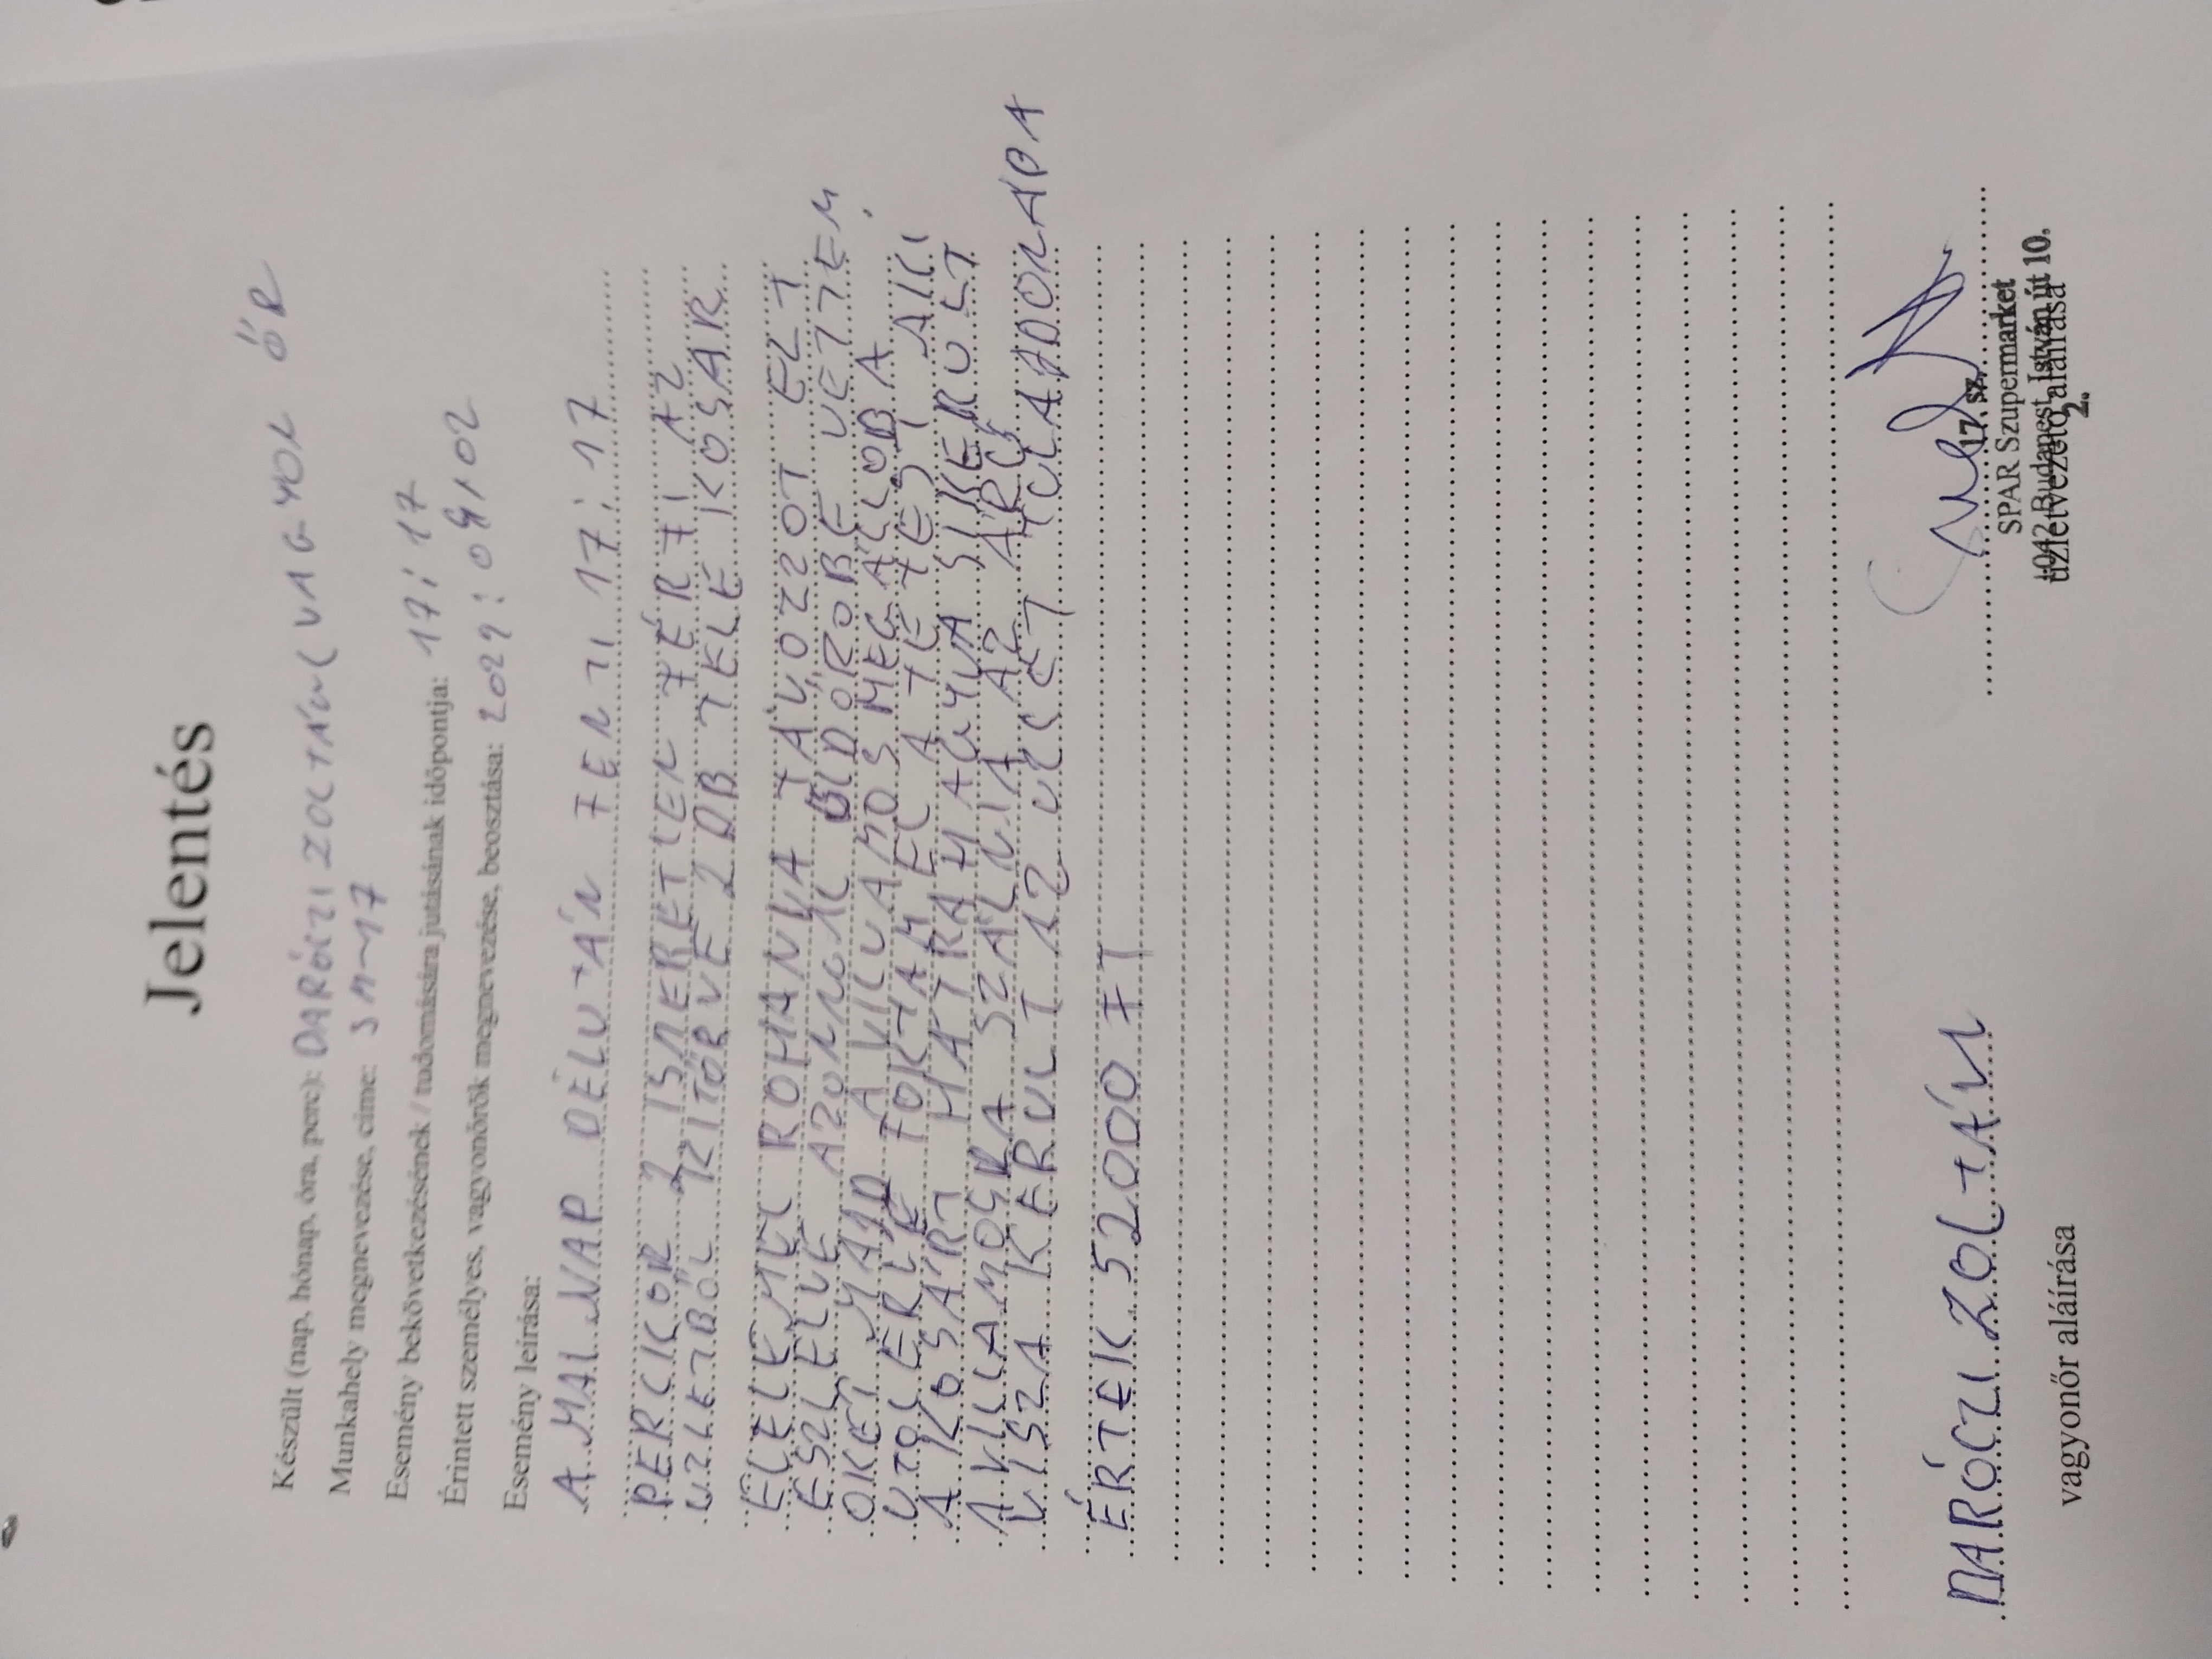 Jelentés
Készült (nap, hónap, óra, perc): DARÓCZI ZOLTÁN (VAGYON ŐR
Munkahely megnevezése, címe: SM-17
Esemény bekövetkezésének / tudomására jutásának időpontja: 17:17
Érintett személyes, vagyonőrök megnevezése, beosztása:
Esemény leírása:
A MAI NAP DÉLUTÁN FENTI 17:17
PERCKOR 2 ISMERETLEN FÉRFI AZ
ÜZLETBŐL KITÖRVE 2 DB TELE KOSÁR
ÉLELEMEL ROHANVA TÁVOZZOT EZT
ÉSZLELVE AZONNAL ÜLDÖRÖBE VETTEM
ŐKET MAJD A VILLAMOS MEGÁLLÓBA
UTOLÉRVE FOKTAM EL A TETTEST AKI
A KOSÁRT HÁTRAHAGYVA SIKERÜLT
A VILLAMOSRA SZÁLNIA AZ ÁRU
VISZA KERÜLT AZ ELADÓNAPA
ÉRTÉK 52000 FT
DARÓCZI ZOLTÁN
vagyonőr aláírása
17. sz.
SPAR Szupermarket
1042 Budapest, István út 10.
üzletvezető aláírása
2.